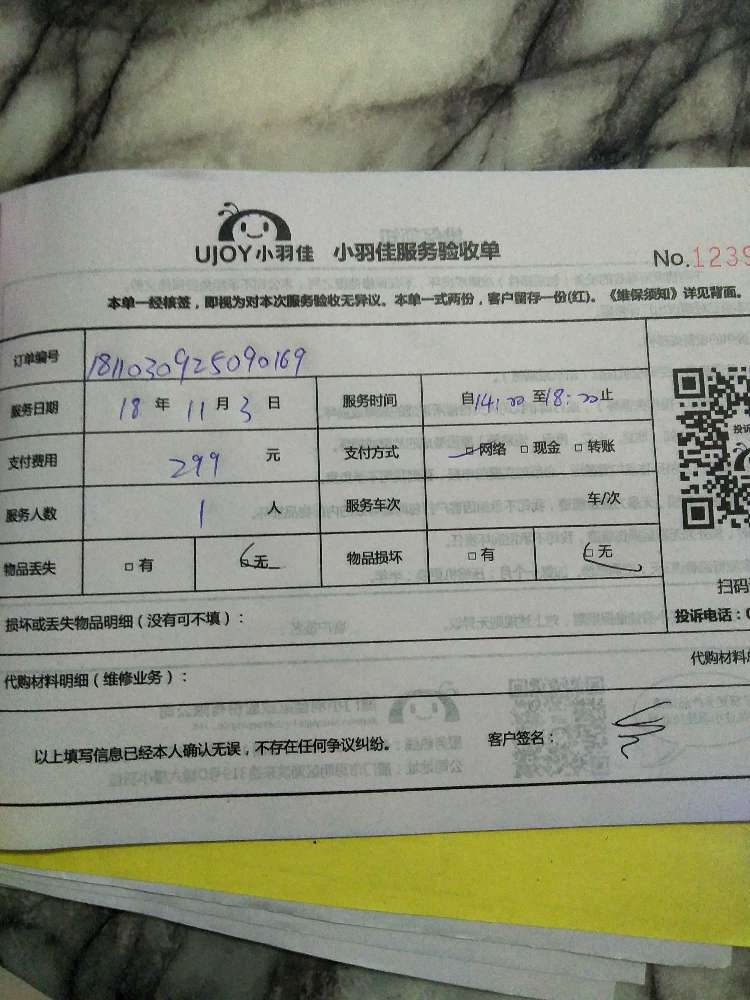 UJOY小羽佳 小羽佳服务验收单
No.1239
本单一经核签，即视为对本次服务验收无异议。本单一式两份，客户留存一份(红)。《维保须知》详见背面。
订单编号 1811030925090169
服务日期 18 年 11 月 3 日 服务时间 自14:00至18:00止
支付费用 299 元 支付方式 □网络 □现金 □转账
服务人数 1 人 服务车次 车/次
物品丢失 □有 □无 物品损坏 □有 □无
投诉
扫码
损坏或丢失物品明细（没有可不填）：
投诉电话：0
代购材料明细（维修业务）：
代购材料
以上填写信息已经本人确认无误，不存在任何争议纠纷。 客户签名：